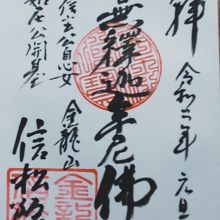 拝
令和二年 元旦
無釋迦牟尼佛
信玄公息女
公開基
金龍山
信松院